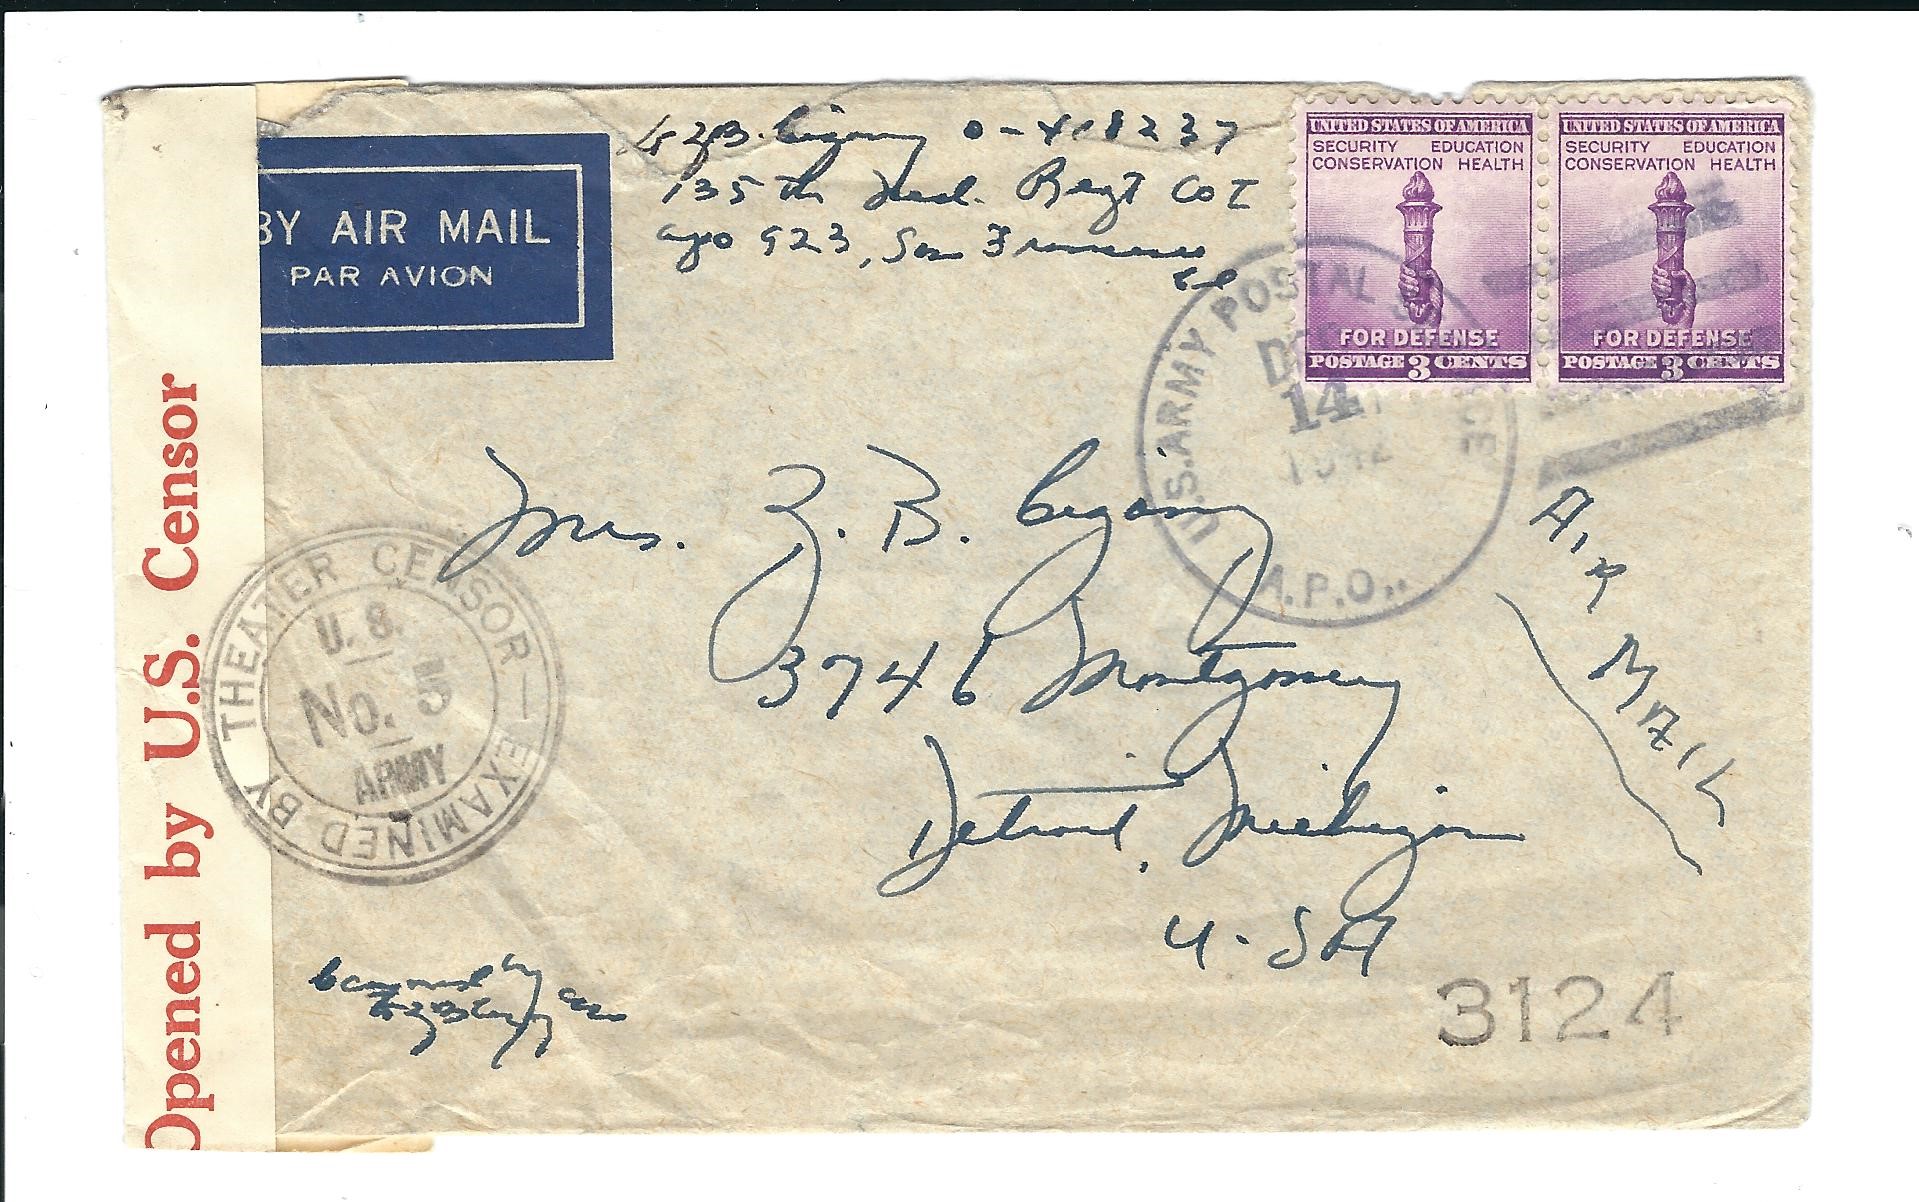 Z.B. Cigany O-418237
135 th Med. Regt Co I
APO 923, San Francisco
Cal
BY AIR MAIL
PAR AVION
UNITED STATES OF AMERICA
SECURITY EDUCATION
CONSERVATION HEALTH
FOR DEFENSE
POSTAGE 3 CENTS
UNITED STATES OF AMERICA
SECURITY EDUCATION
CONSERVATION HEALTH
FOR DEFENSE
POSTAGE 3 CENTS
U.S. ARMY POSTAL SERVICE
14
1942
A.P.O.
Mrs. Z. B. Cigany
3746 Montgomery
Detroit, Michigan
U. S A
Air Mail
Opened by U.S. Censor
EXAMINED BY THEATER CENSOR
U. S.
No. 5
ARMY
by
3124